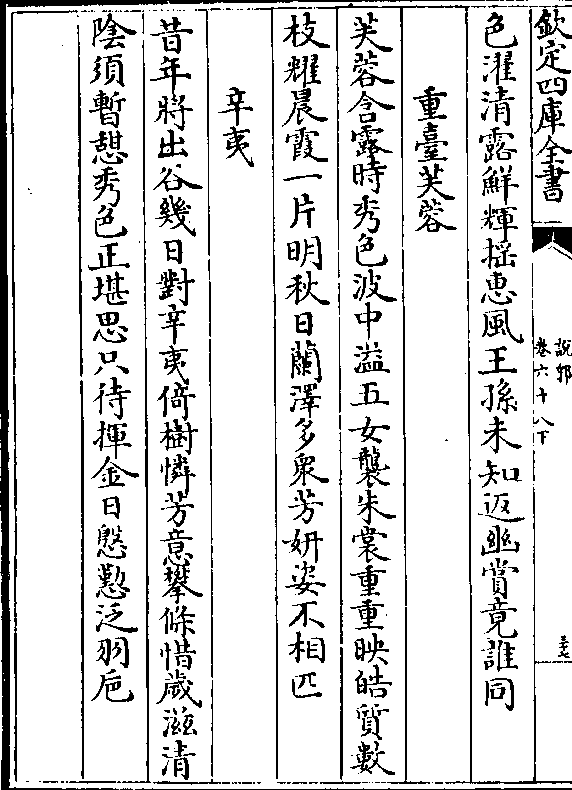 欽定四庫全書
說郛
卷六十八下
三十七
色濯清露鮮輝揺惠風王孫未知返幽賞竟誰同
重臺芙蓉
芙蓉含露時秀色波中溢五女襲朱裳重重映皓質數
枝耀晨霞一片明秋日蘭澤多衆芳妍姿不相匹
辛夷
昔年將出谷幾日對辛夷倚樹憐芳意攀條惜歲滋清
陰須暫憇秀色正堪思只待揮金日慇懃泛羽巵